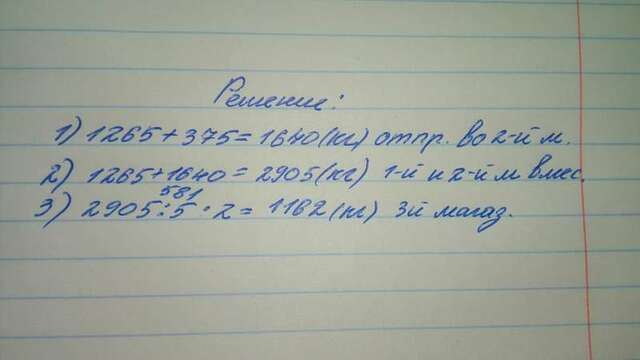 Решение:
1) 1265+375=1640(кг) отпр. во 2-й м.
2) 1265+1640=2905(кг) 1-й и 2-й м вмес.
581
3) 2905:5·2=1162(кг) 3й магаз.